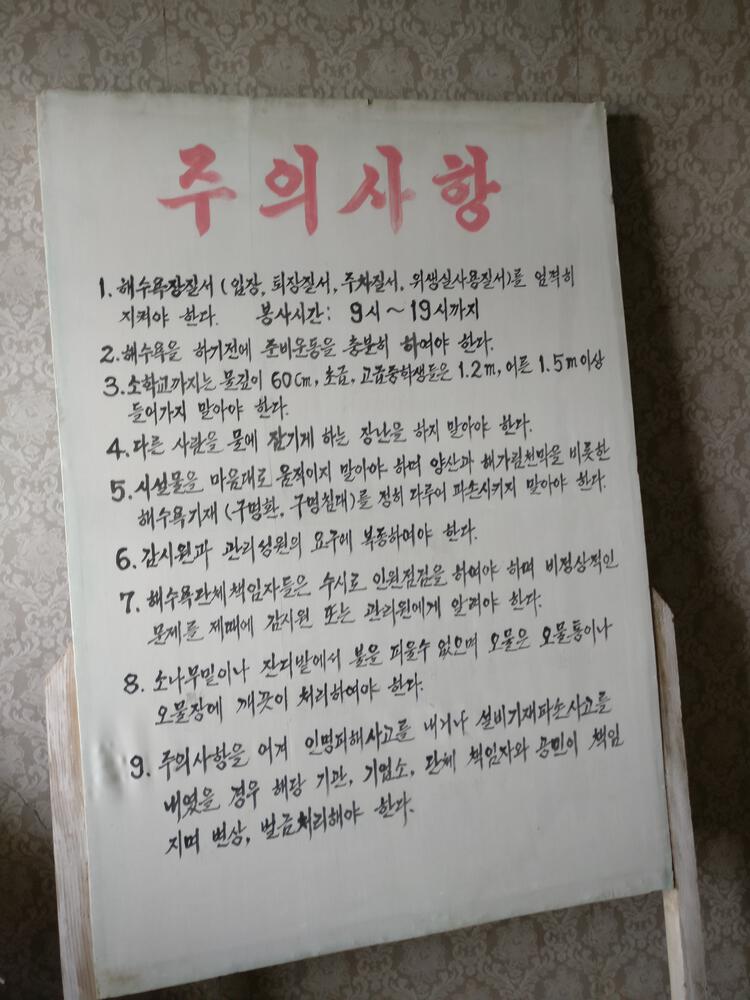 주의사항
1. 해수욕장질서 (입장, 퇴장질서, 주차질서, 위생실사용질서)를 엄격히
지켜야 한다. 봉사시간: 9시~19시까지
2. 해수욕을 하기전에 준비운동을 충분히 하여야 한다.
3. 소학교까지는 물깊이 60cm, 초급, 고급중학생들은 1.2m, 어른 1.5m이상
들어가지 말아야 한다.
4. 다른 사람을 물에 잠기게 하는 장난을 하지 말아야 한다.
5. 시설물을 마음대로 움직이지 말아야 하며 양산과 해가림천막을 비롯한
해수욕기재 (구명환, 구명침대)를 정히 다루어 파손시키지 말아야 한다.
6. 감시원과 관리성원의 요구에 복종하여야 한다.
7. 해수욕단체책임자들은 수시로 인원점검을 하여야 하며 비정상적인
문제를 제때에 감시원 또는 관리원에게 알려야 한다.
8. 소나무밑이나 잔디밭에서 불을 피울수 없으며 오물은 오물통이나
오물장에 깨끗이 처리하여야 한다.
9. 주의사항을 어겨 인명피해사고를 내거나 설비기재파손사고를
내였을 경우 해당 기관, 기업소, 단체 책임자와 공민이 책임
지며 변상, 벌금처리해야 한다.